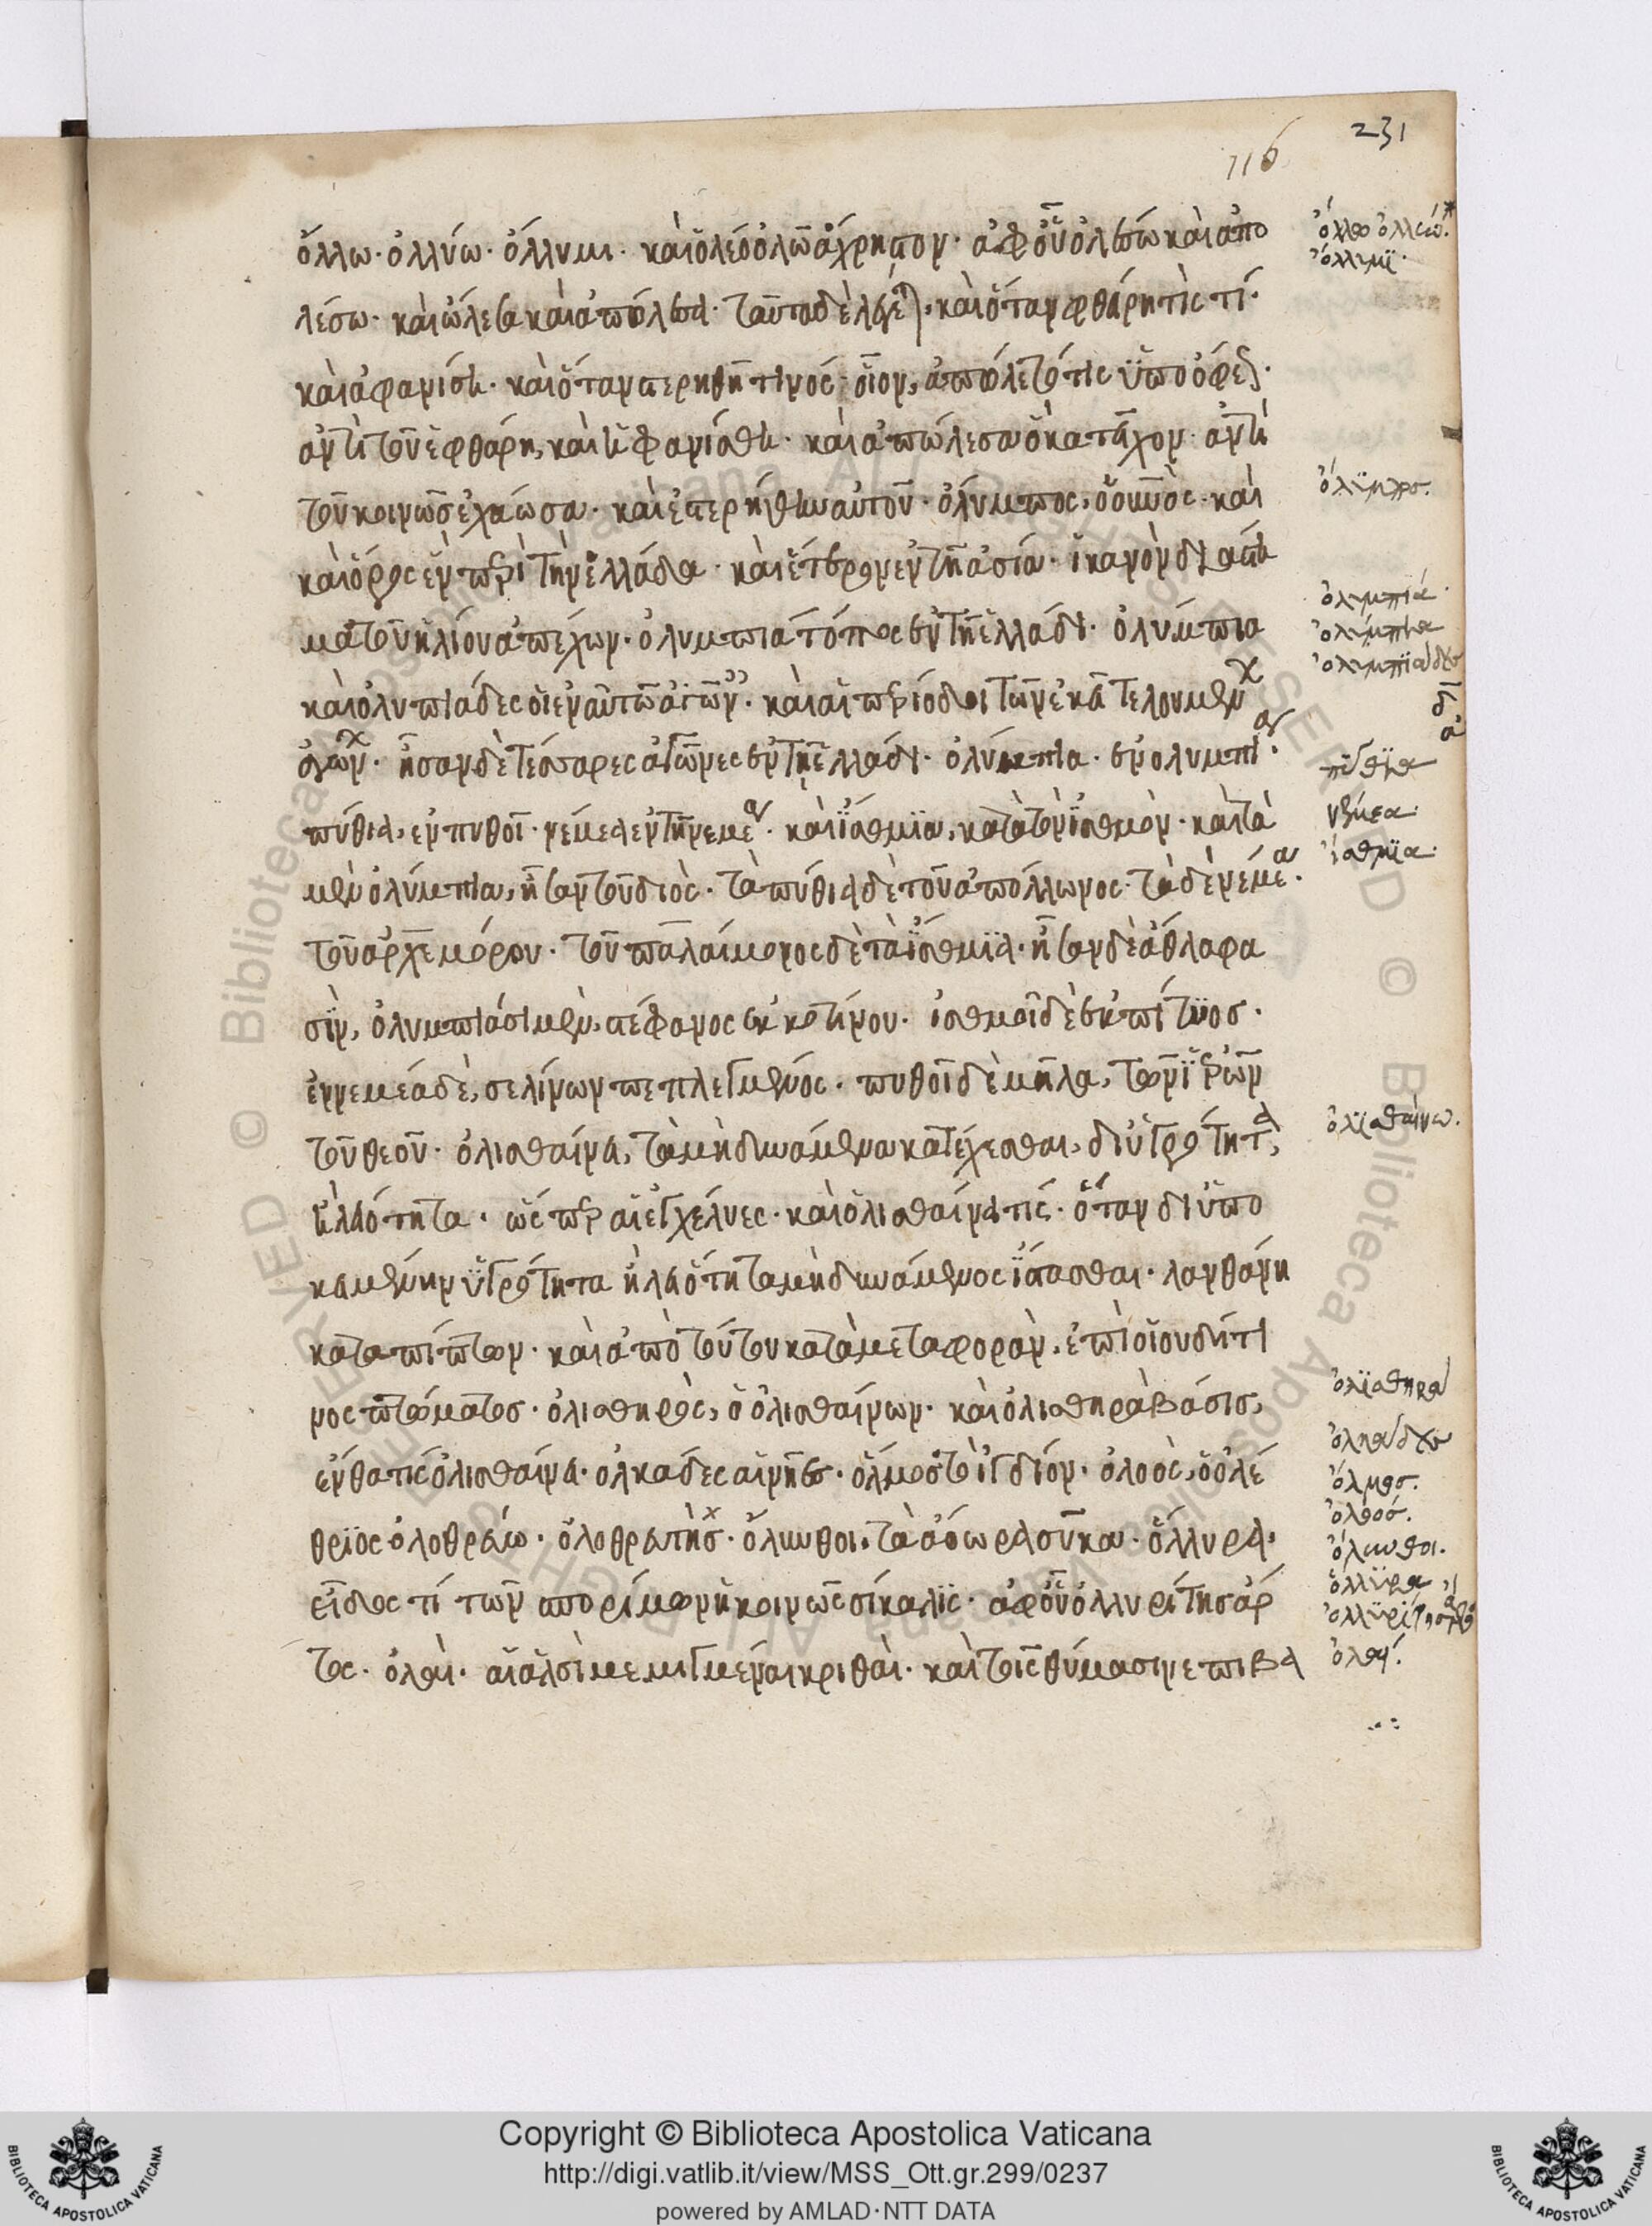 231
116
ὄλλω· ὀλλύω· ὄλλυμι· καὶ ὀλέσ ὀλῶ ἄχρηστον· ἀφ' οὗ ὀλέσω καὶ ἀπο
λέσω· καὶ ὤλεσα καὶ ἀπώλεσα· καὶ ὅταν φθάρη τὶς τί·
καὶ ἀφανίσει· καὶ ὅταν στερηθῆ τινός· οἷον, ἀπώλετό τις ὑπὸ
ἀντὶ τοῦ ἐφθάρη, καὶ ἠφανίσθη· καὶ ἀπώλεσα ὃ κατεῖχον· ἀντὶ
τοῦ κοινῶς ἐχαώσα· καὶ ἐστερήθην αὐτοῦ· ὄλυμπος, ὁ οὐνὸς· καὶ
καὶ ὄρος ἐν περὶ τὴν ἑλλάδα· καὶ ἕτερον ἐν τῆ ἀσία· ἱκανὸν διάστη
μα τοῦ ἡλίου ἀπέχων· ὀλυμπιά τόπος ἐν τῆ ἑλλάδι· ὀλύμπια
καὶ ὀλυπιάδες οἱ ἐν αὐτῶ ἀγῶν· καὶ αἱ περίοδοι τῶν ἐκεῖ τελουμέν
ἀγών· ἦσαν δὲ τέσσαρες ἀγῶνες ἐν τῆ ἑλλάδι· ὀλύμπια· ἐν ὀλυμπί·
πύθια, ἐν πυθοῖ· νέμεα ἐν τῆ νεμέα· καὶ ἴσθμια, κατὰ τὸν ἰσθμὸν· καὶ τὰ
μὲν ὀλύμπια, ἦσαν τοῦ διὸς· τὰ πύθια δὲ τοῦ ἀπόλλωνος· τὰ δὲ νέμεα·
τοῦ ἀρχεμόρου· τοῦ παλαίμονος δὲ τὰ ἴσθμια· ἦσαν δὲ ἆθλα φα
σὶν, ὀλυμπιάσι μὲν, στέφανος ἐκ κοτίνου· ἰσθμοῖ δὲ ἐκ πίτυος·
ἐν νεμέα δὲ, σελίνων πεπλεγμένος· πυθοῖ δὲ μῆλα, τῶν ἱερῶν
τοῦ θεοῦ· ὀλισθαίνει, τὸ μὴ δυνάμενον κατέχεσθαι, δι' ὑγρότητα,
ἢ λειότητα· ὥσπερ αἱ ἐγχέλυες· καὶ ὀλισθαίνει τίς· ὅταν δι' ὑπο
κειμένην ὑγρότητα ἢ λειότητα μὴ δυνάμενος ἵστασθαι· λανθάνη
καταπίπτων· καὶ ἀπὸ τούτου κατὰ μεταφορὰν, ἐπὶ οἱουδήτι
νος πτώματος· ὀλισθηρὸς, ὁ ὀλισθαίνων· καὶ ὀλισθηρὰ βάσις,
ἔνθα τίς ὀλισθαίνει· ὁλκάδες αἱ νῆες· ὅλμος τὸ ἰγδίον· ὀλοὸς, ὁ ὀλέ
θριος ὀλοθρεύω· ὀλοθρευτὴς· ὄλυνθοι· τὰ ἄωρα σῦκα· ὄλλυρα·
εἶδος τί τῶν σπορίμων ἢ κοινῶς σίκαλις· ἀφ' οὗ ὀλλυρίτης ἄρ
τος· ὀλαὶ· αἱ ἁλσὶ μεμιγμέναι κριθαὶ· καὶ τοῖς θύμασιν ἐπιβα
ὄλλω ὀλλύω·
ὄλλυμι·
ὄλυμπος·
ὀλυμπιά·
ὀλύμπια
ὀλυμπιάδες
δ
α
πύθια
νέμεα·
ἴσθμια·
ὀλισθαίνω·
ὀλισθηρά
ὁλκάδες
ὅλμος·
ὀλοός·
ὄλυνθοι·
ὄλλυρα
ὀλλυρίτης
ὀλαί·
Copyright © Biblioteca Apostolica Vaticana
http://digi.vatlib.it/view/MSS_Ott.gr.299/0237
powered by AMLAD·NTT DATA
BIBLIOTECA APOSTOLICA VATICANA
BIBLIOTECA APOSTOLICA VATICANA